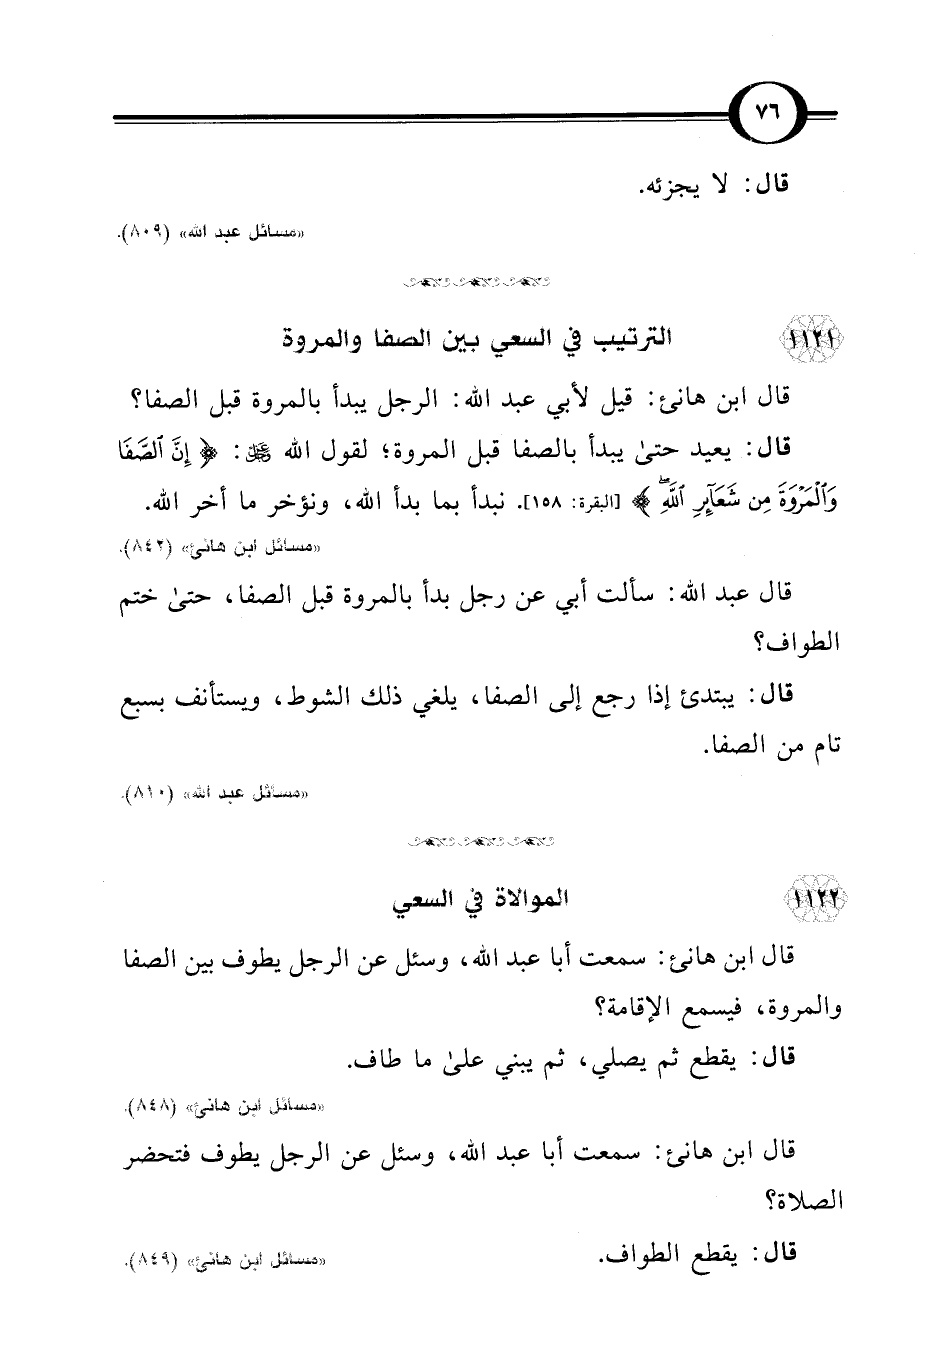 ٧٦
قال: لا يجزئه.
«مسائل عبد الله» (٨٠٩).
١١٢١ الترتيب في السعي بين الصفا والمروة
قال ابن هانئ: قيل لأبي عبد الله: الرجل يبدأ بالمروة قبل الصفا؟
قال: يعيد حتىٰ يبدأ بالصفا قبل المروة؛ لقول الله ﷻ: ﴿ إِنَّ ٱلصَّفَا
وَٱلْمَرْوَةَ مِن شَعَآئِرِ ٱللَّهِۖ ﴾ [البقرة: ١٥٨]. نبدأ بما بدأ الله، ونؤخر ما أخر الله.
«مسائل ابن هانئ» (٨٤٢).
قال عبد الله: سألت أبي عن رجل بدأ بالمروة قبل الصفا، حتىٰ ختم
الطواف؟
قال: يبتدئ إذا رجع إلى الصفا، يلغي ذلك الشوط، ويستأنف بسبع
تام من الصفا.
«مسائل عبد الله» (٨١٠).
١١٢٢ الموالاة في السعي
قال ابن هانئ: سمعت أبا عبد الله، وسئل عن الرجل يطوف بين الصفا
والمروة، فيسمع الإقامة؟
قال: يقطع ثم يصلي، ثم يبني علىٰ ما طاف.
«مسائل ابن هانئ» (٨٤٨).
قال ابن هانئ: سمعت أبا عبد الله، وسئل عن الرجل يطوف فتحضر
الصلاة؟
قال: يقطع الطواف. «مسائل ابن هانئ» (٨٤٩).